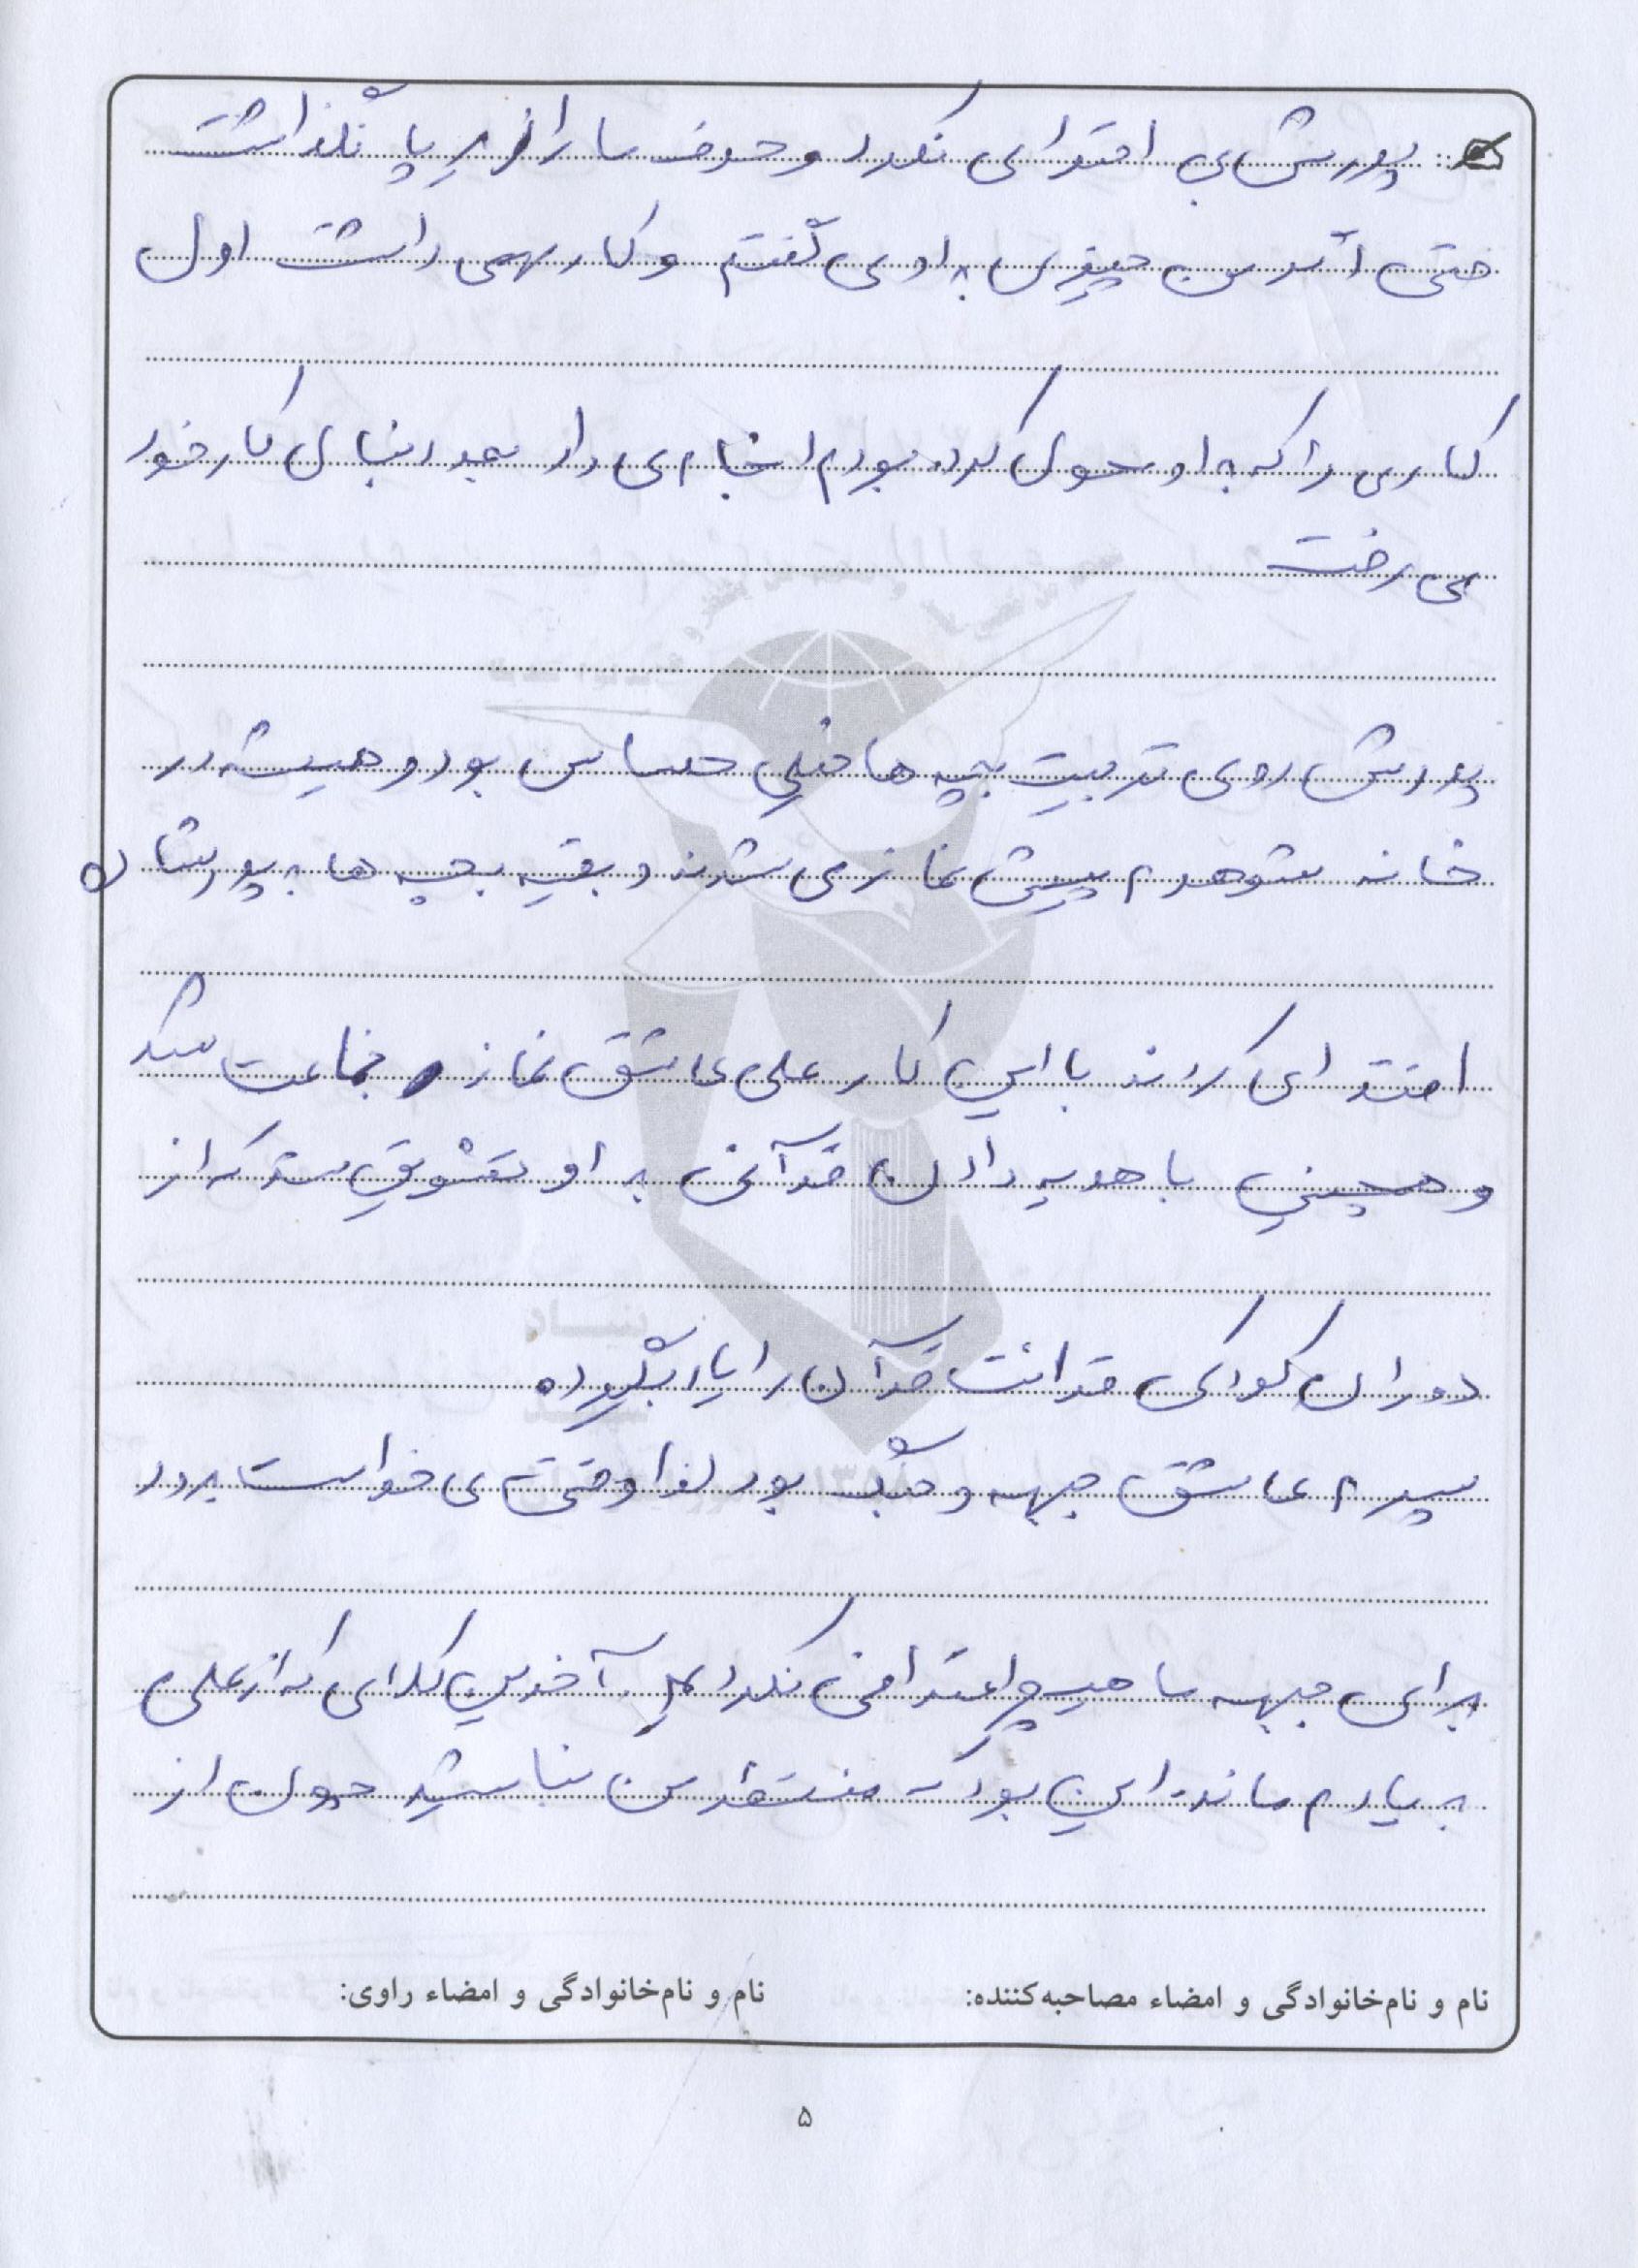 پدرش بی احترامی نکرد و حرف ما را زیر پا نگذاشت
حتی اگر من چیزی به او می گفتم و کار مهمی داشت اول
کاری را که به او محول کرده بودم انجام می داد بعد دنبال کار خود
می رفت
پدرش روی تربیت بچه ها خیلی حساس بود و همیشه در
خانه شوهرم پیش نماز می شدند و بقیه بچه ها به پدرشان
اقتدا می کردند با این کار علی عاشق نماز جماعت شد
و همچنین با هدیه دادن قرآنی به او تشویق شد که از
دوران کودکی قرائت قرآن را یاد بگیرد
پسرم عاشق جبهه و جنگ بود لذا وقتی می خواست برود
برای جبهه ما هیچ اعتراضی نکردیم آخرین کلامی که از علی
به یادم مانده این بود که منتظر من نباشید چون از
نام و نام‌خانوادگی و امضاء مصاحبه‌کننده:
نام و نام‌خانوادگی و امضاء راوی:
۵